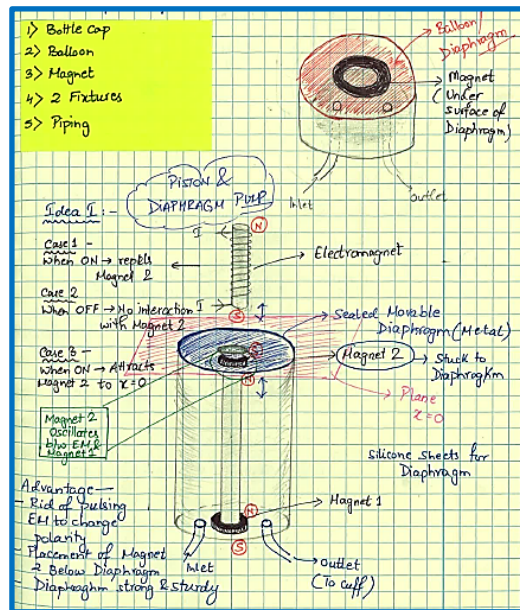 1) Bottle Cap
2) Balloon
3) Magnet
4) 2 Fixtures
5) Piping
Balloon/
Diaphragm
Magnet
(Under
surface of
Diaphragm)
Inlet
outlet
PISTON &
DIAPHRAGM PULP
Idea I :-
I
N
Electromagnet
Case 1 -
When ON → repels
Magnet 2
Case 2
When OFF → No interaction
with Magnet 2
I
S
Sealed Movable
Diaphragm (Metal)
Case 3 -
When ON → Attracts
Magnet 2 to x=0
S
N
Magnet 2 → Stuck to
Diaphragm
Plane
x=0
Magnet 2
Oscillates
b/w EM &
Magnet 1
Silicone sheets for
Diaphragm
Advantage —
- Rid of pulsing
EM to change
polarity
- Placement of Magnet
2 Below Diaphragm
Diaphragm strong & sturdy
N
Magnet 1
S
Inlet
Outlet
(To cuff)